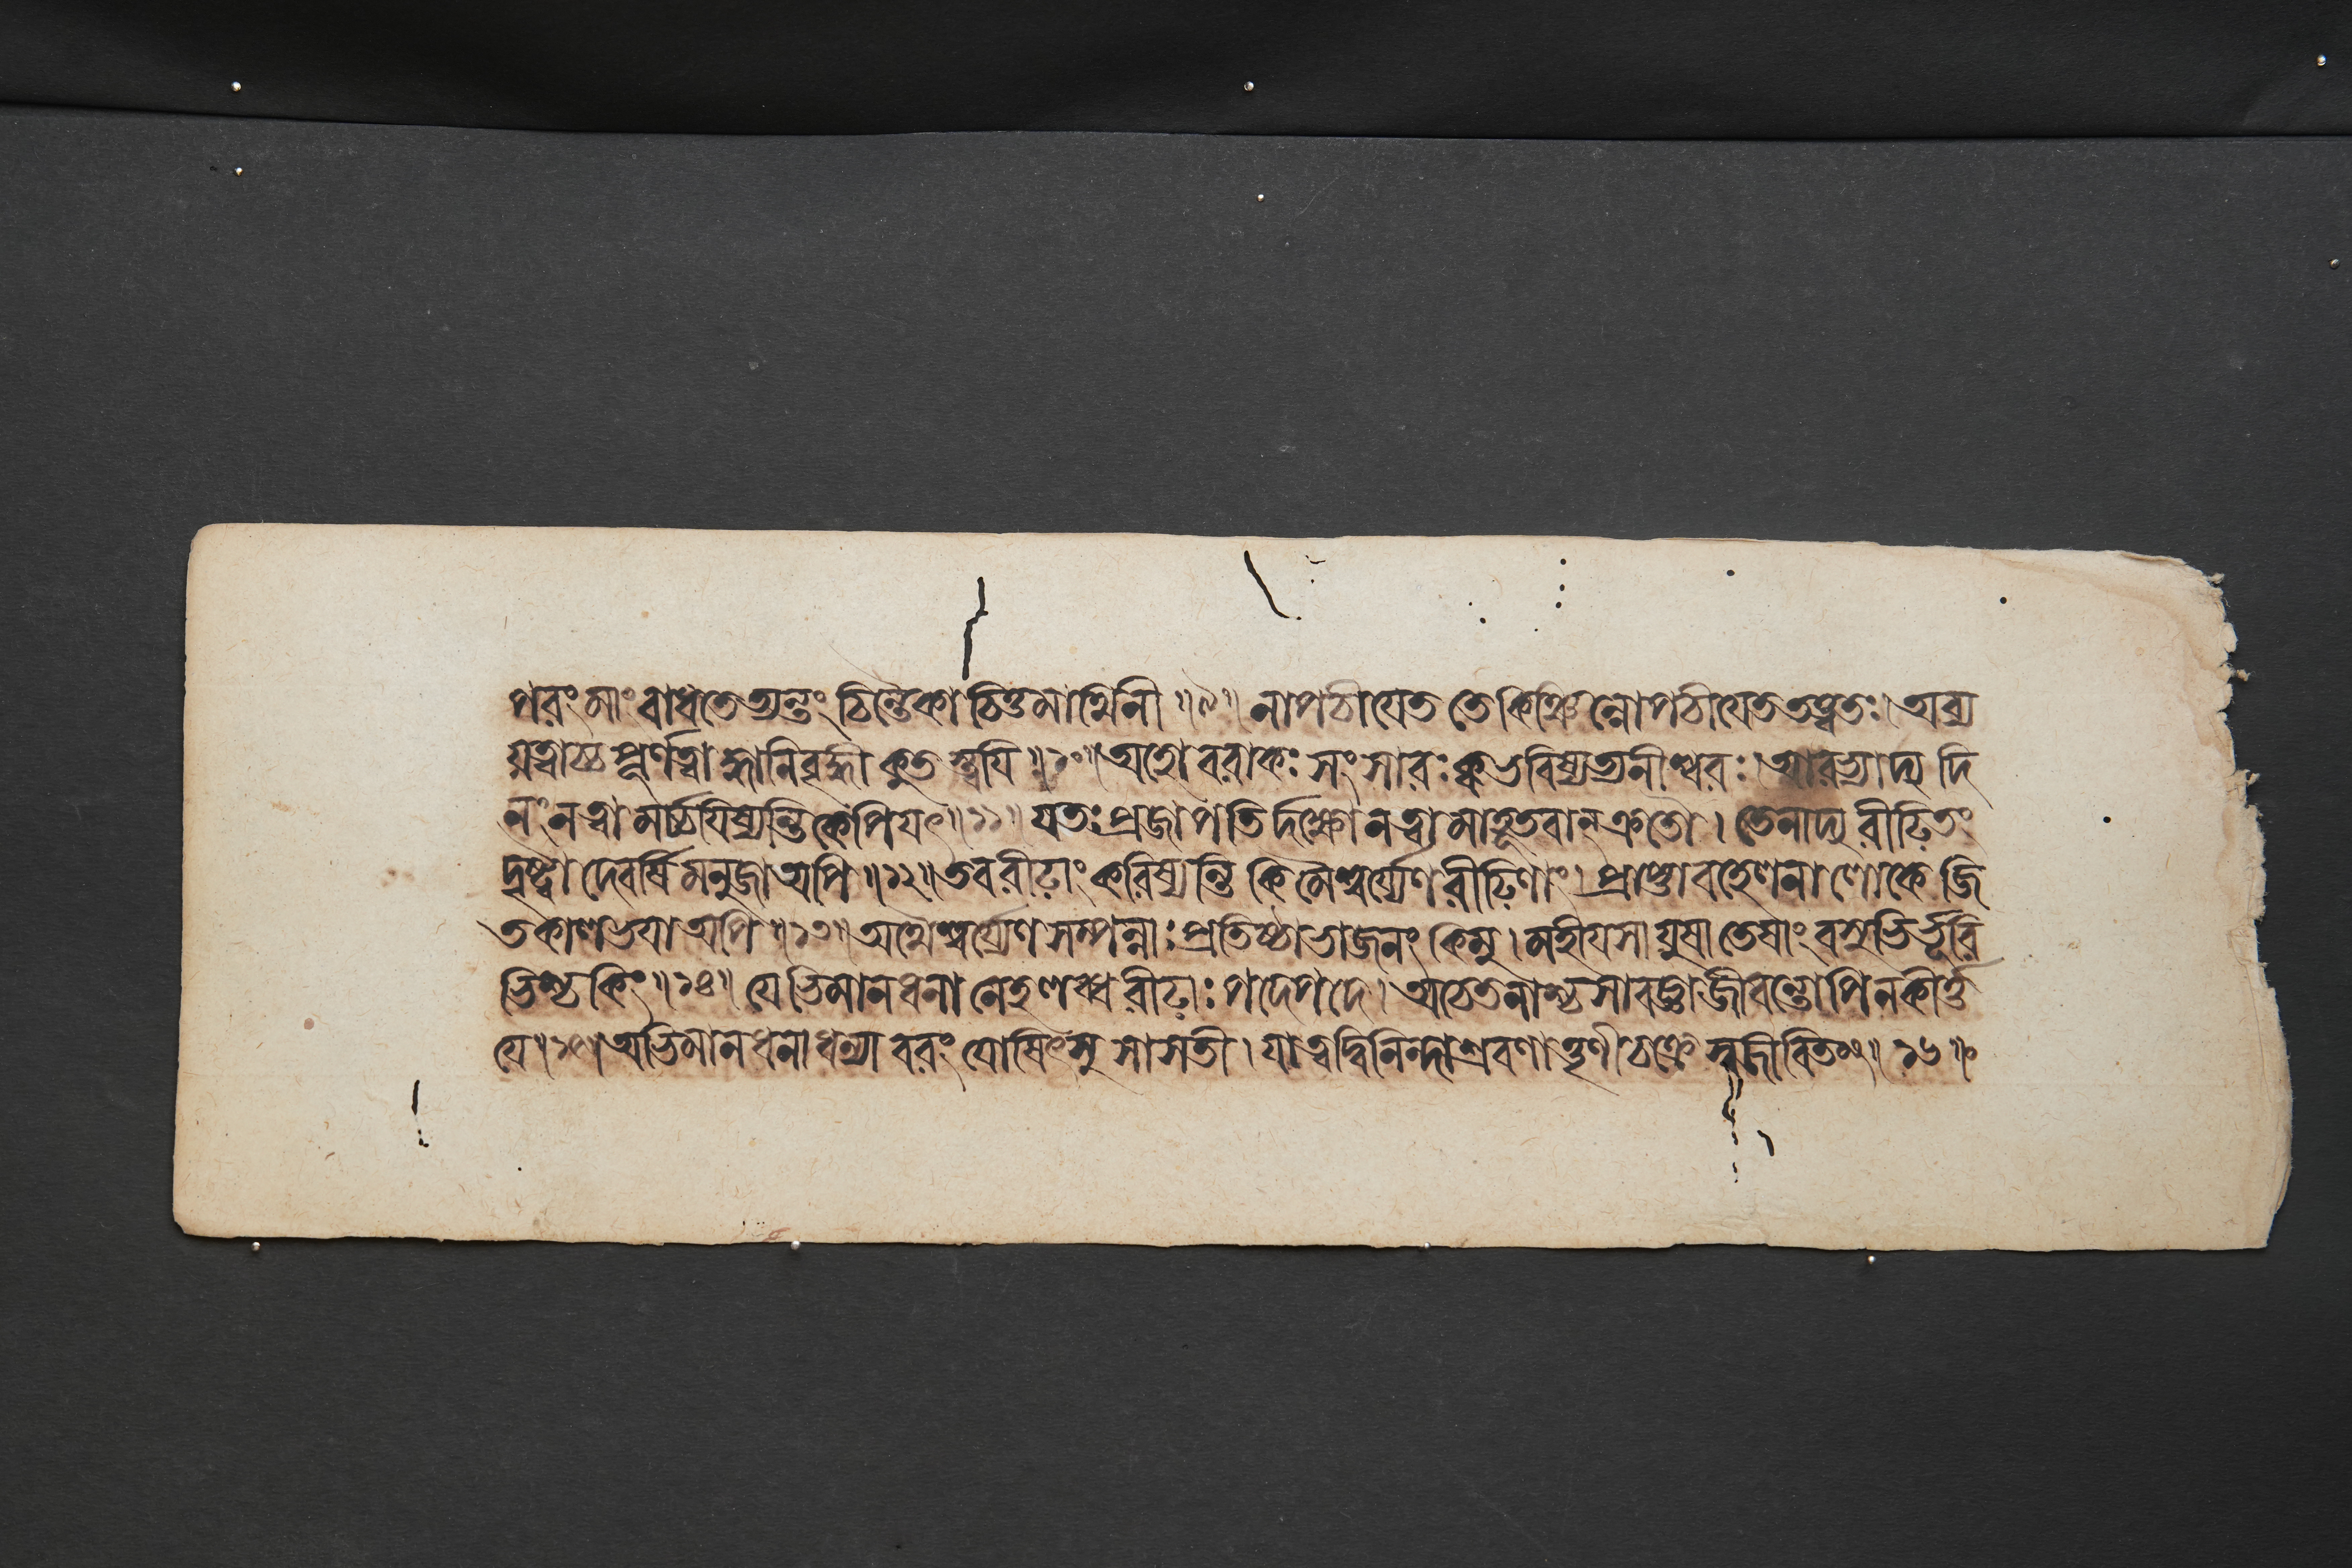 পরং মাং বাধতেত্যন্তং চিন্তৈকা চিত্তমাথিনী ॥৯॥ নাপচীয়েত তে কিঞ্চিন্নোপচীয়েত তত্ত্বতঃ। অব্য
য়ত্বাচ্চ পূর্ণত্বাদ্ধানিবৃদ্ধী কুতস্ত্বয়ি ॥১০॥ অহো বরাকঃ সংসারঃ ক্ব ভবিষ্যত্যনীশ্বরঃ। আরভ্যাদ্য দি
নং ন ত্বামর্চ্চয়িষ্যন্তি কেপি যৎ ॥১১॥ যতঃ প্রজাপতির্দক্ষো ন ত্বামাহূতবান্ ক্রতৌ। তেনাদ্য রীঢ়িতং
দৃষ্ট্বা দেবর্ষিমনুজা অপি ॥১২॥ তব রীঢ়াং করিষ্যন্তি কিমৈশ্বর্য্যেণ রীঢ়িণাং। প্রাপ্তাবহেলনা লোকে জি
তকালভয়া অপি ॥১৩॥ অথৈশ্বর্য্যেণ সম্পন্নাঃ প্রতিষ্ঠাভাজনং কিমু। মহীয়সায়ুষা তেষাং বসুভির্ভূরি
ভিশ্চ কিং ॥১৪॥ যেভিমানধনা নেহ লব্ধরীঢ়াঃ পদে পদে। অচেতনাশ্চ সাবজ্ঞা জীবন্তোপি ন কীর্ত্ত
য়ে ॥১৫॥ অভিমানধনা ধন্যা বরং যোষিৎসু সা সতী। যা ত্বদ্বিনিন্দাশ্রবণাত্তৃণীচক্রে স্বজীবিতং॥ ১৬॥